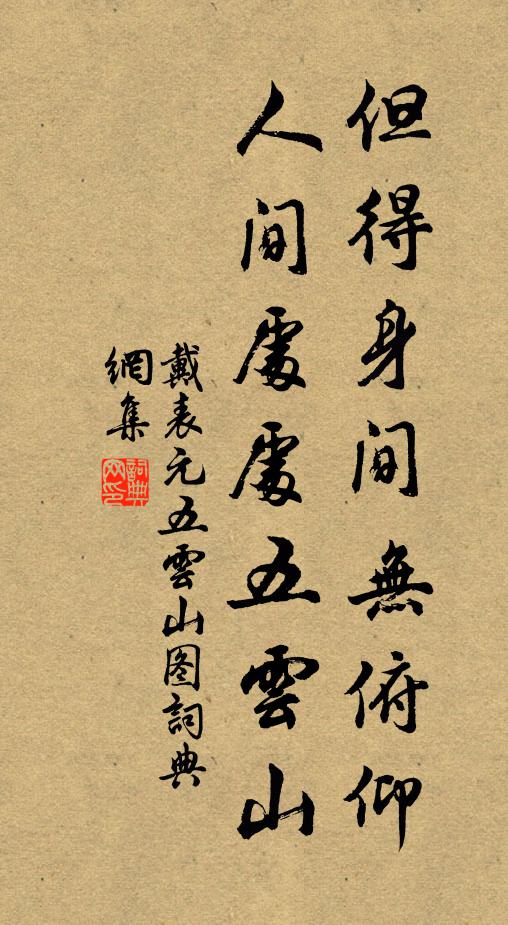 但得身间無俯仰
人间處處五雲山
戴表元五雲山图詞典
網集
詞典网印